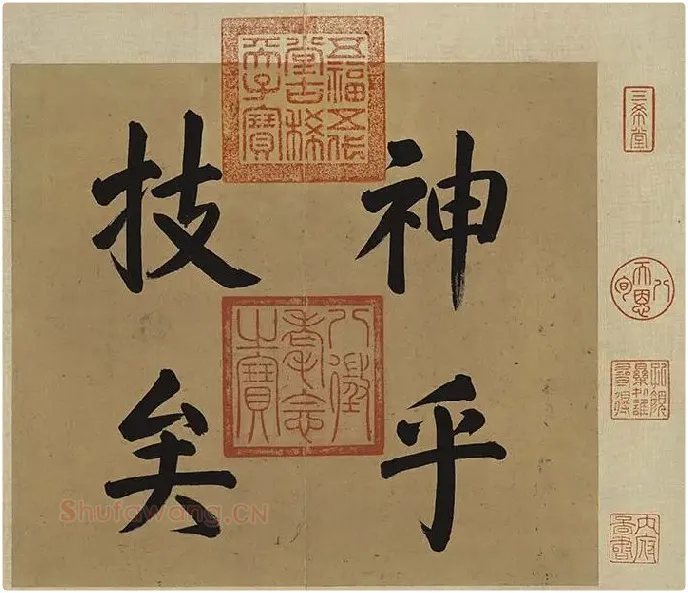 三希堂
八旬天恩
神乎
技矣
五福五代
堂古稀
天子寶
八徵
耄念
之寶
Shufawang.CN